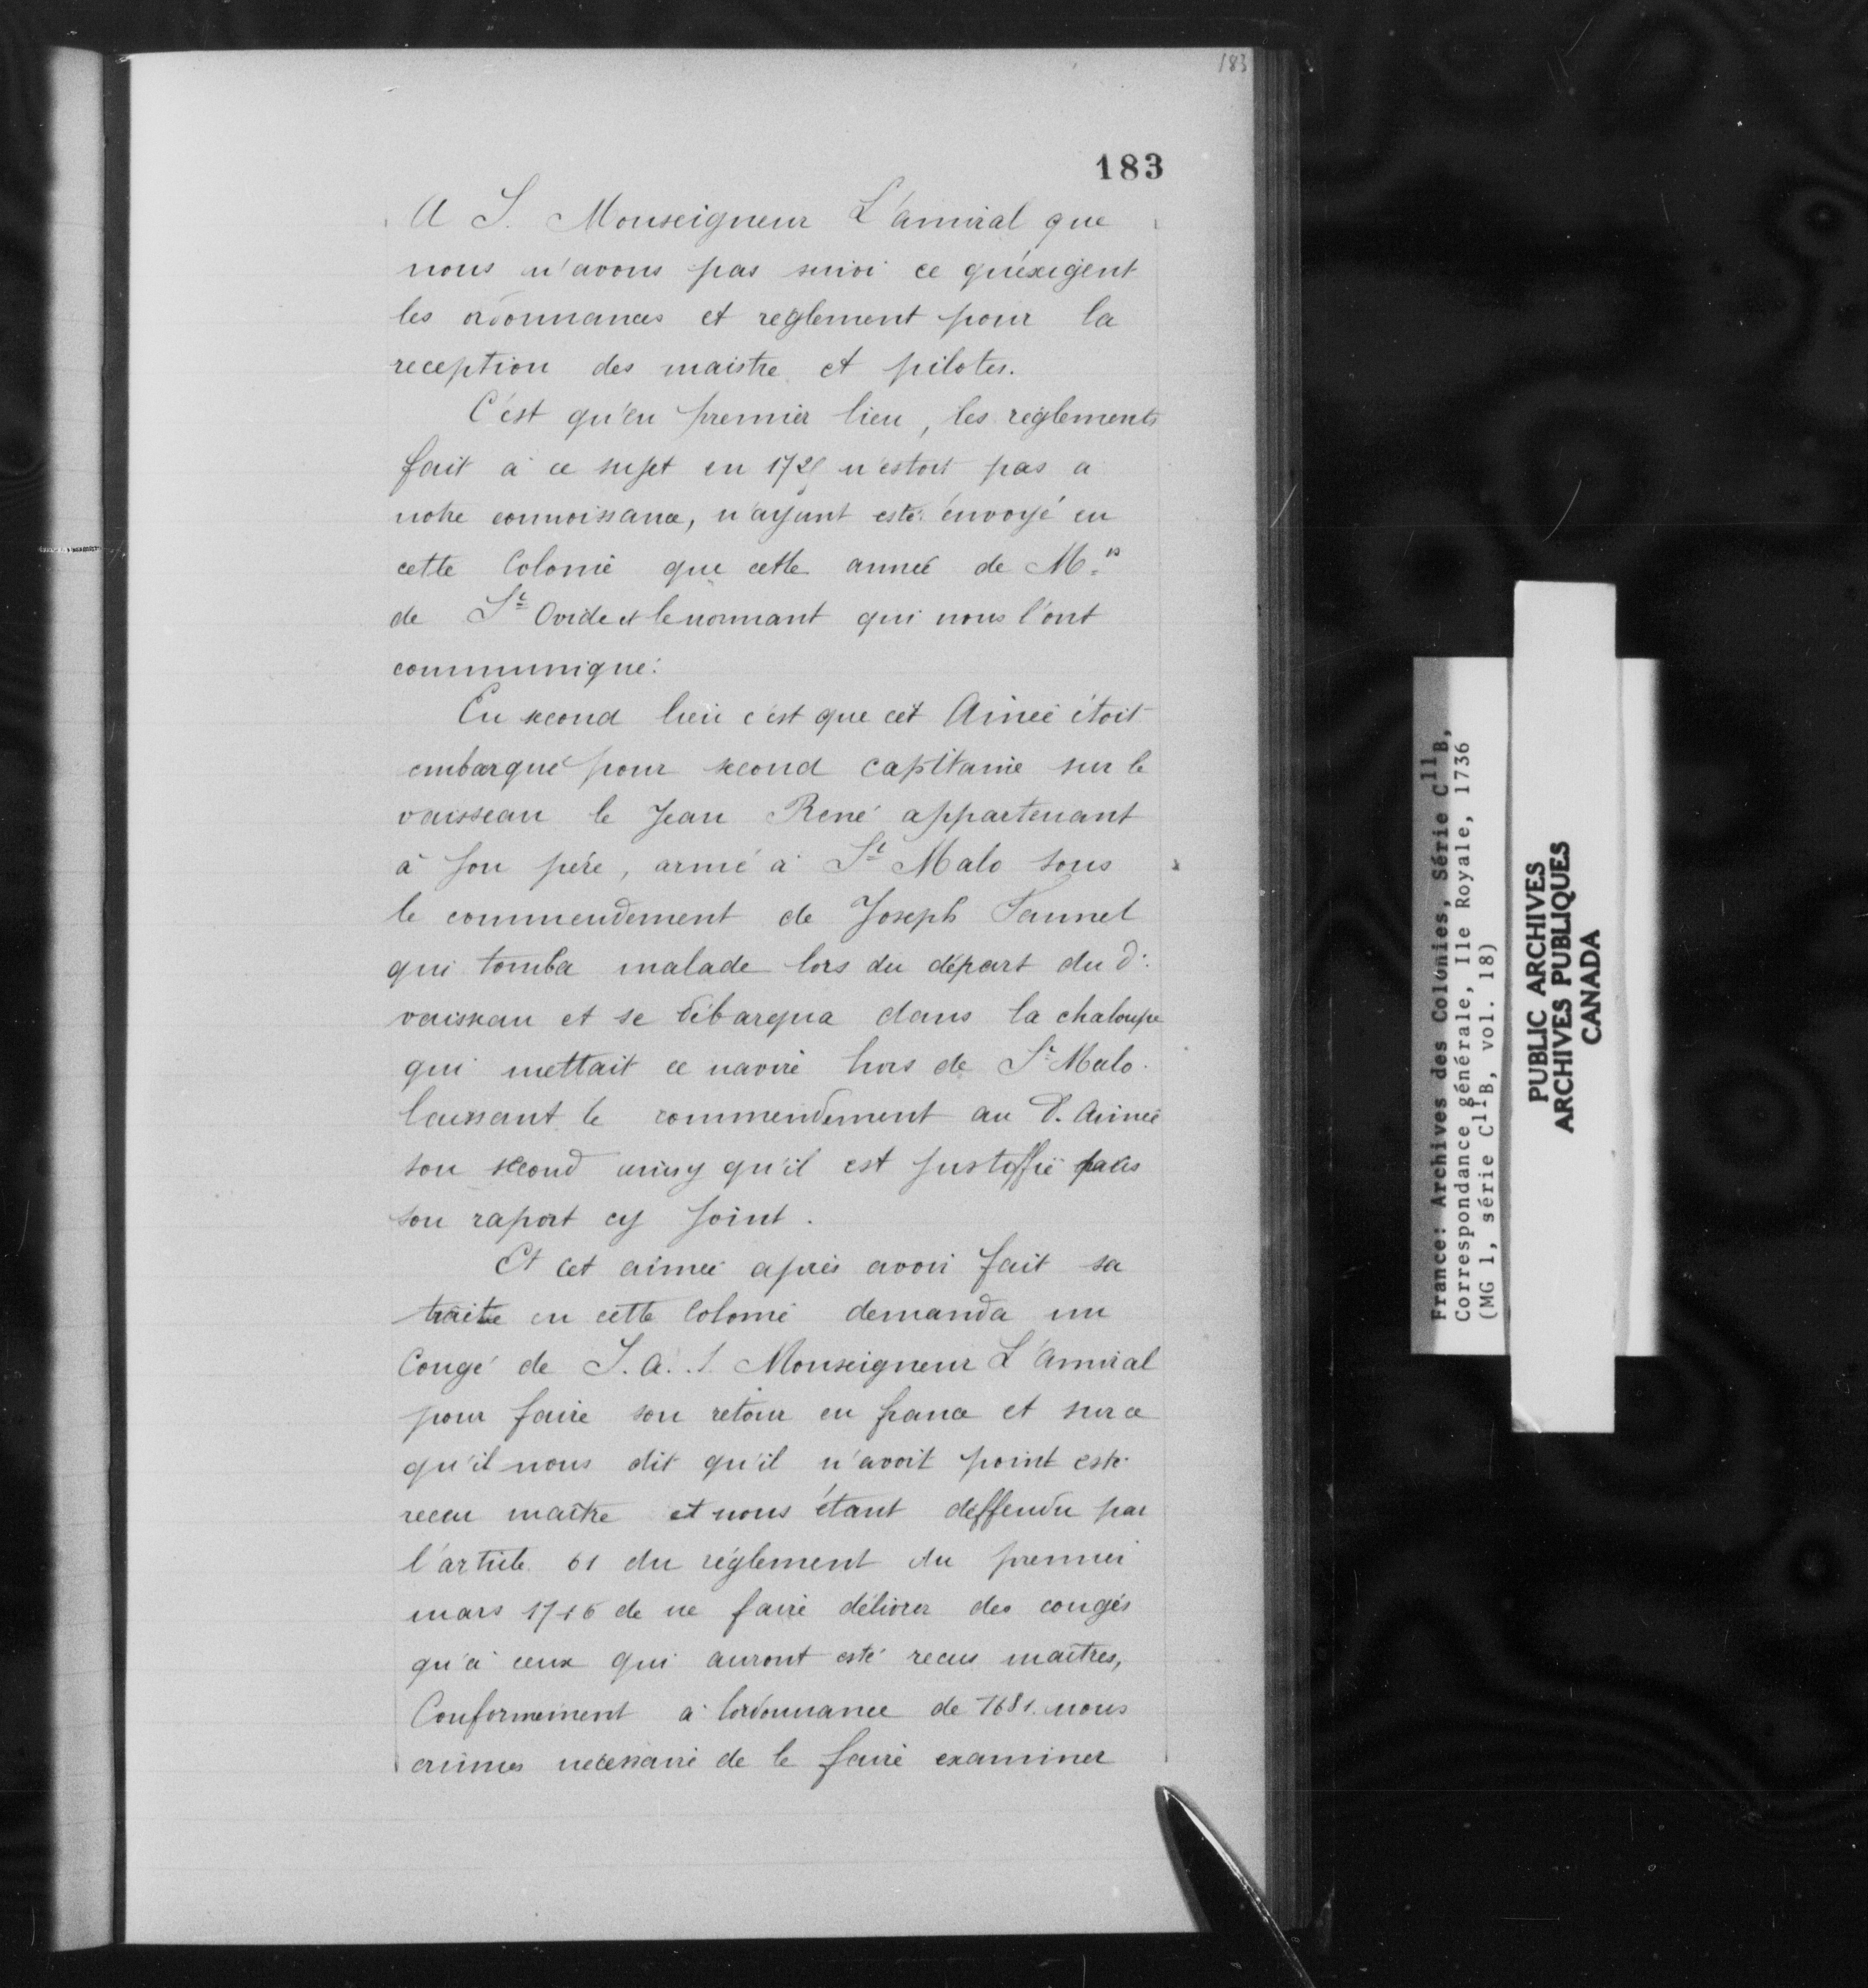 183
183
A S. Monseigneur L'amiral que
nous n'avons pas suivi ce qu'exigent
les ordonnances et reglement pour la
reception des maistre et pilotes.
C'est qu'en premier lieu, les reglements
fait à ce sujet en 1725 n'estoit pas a
notre connoissance, n'ayant esté envoyé en
cette Colonie que cette année de M.rs
de St Ovide et lenormant qui nous l'ont
communiqué.
En second lieu c'est que cet Aimeé étoit
embarqué pour second capitaine sur le
vaisseau le Jean René appartenant
à son père, armé à St Malo sous
le commendement de Joseph
qui tomba malade lors du départ du d.
vaisseau et se débarqua dans la chaloupe
qui mettait ce navire hors de St Malo.
laissant le commendement au d. Aimeé
son second ainsy qu'il est justiffié
son raport cy joint.
Et cet aimeé après avoir fait sa
traite en cette Colonie demanda un
Congé de S. A. S. Monseigneur L'amiral
pour faire son retour en france et sur ce
qu'il nous dit qu'il n'avoit point esté
receu maître et nous étant deffendu par
l'article 61 du réglement du premier
mars 1716 de ne faire délivrer des congés
qu'à ceux qui auront esté recus maîtres,
Conformément à lordonnance de 1681. nous
crûmes necessaire de le faire examiner
France: Archives des Colonies, Série C11B,
Correspondance générale, Ile Royale, 1736
(MG 1, série C11B, vol. 18)
PUBLIC ARCHIVES
ARCHIVES PUBLIQUES
CANADA